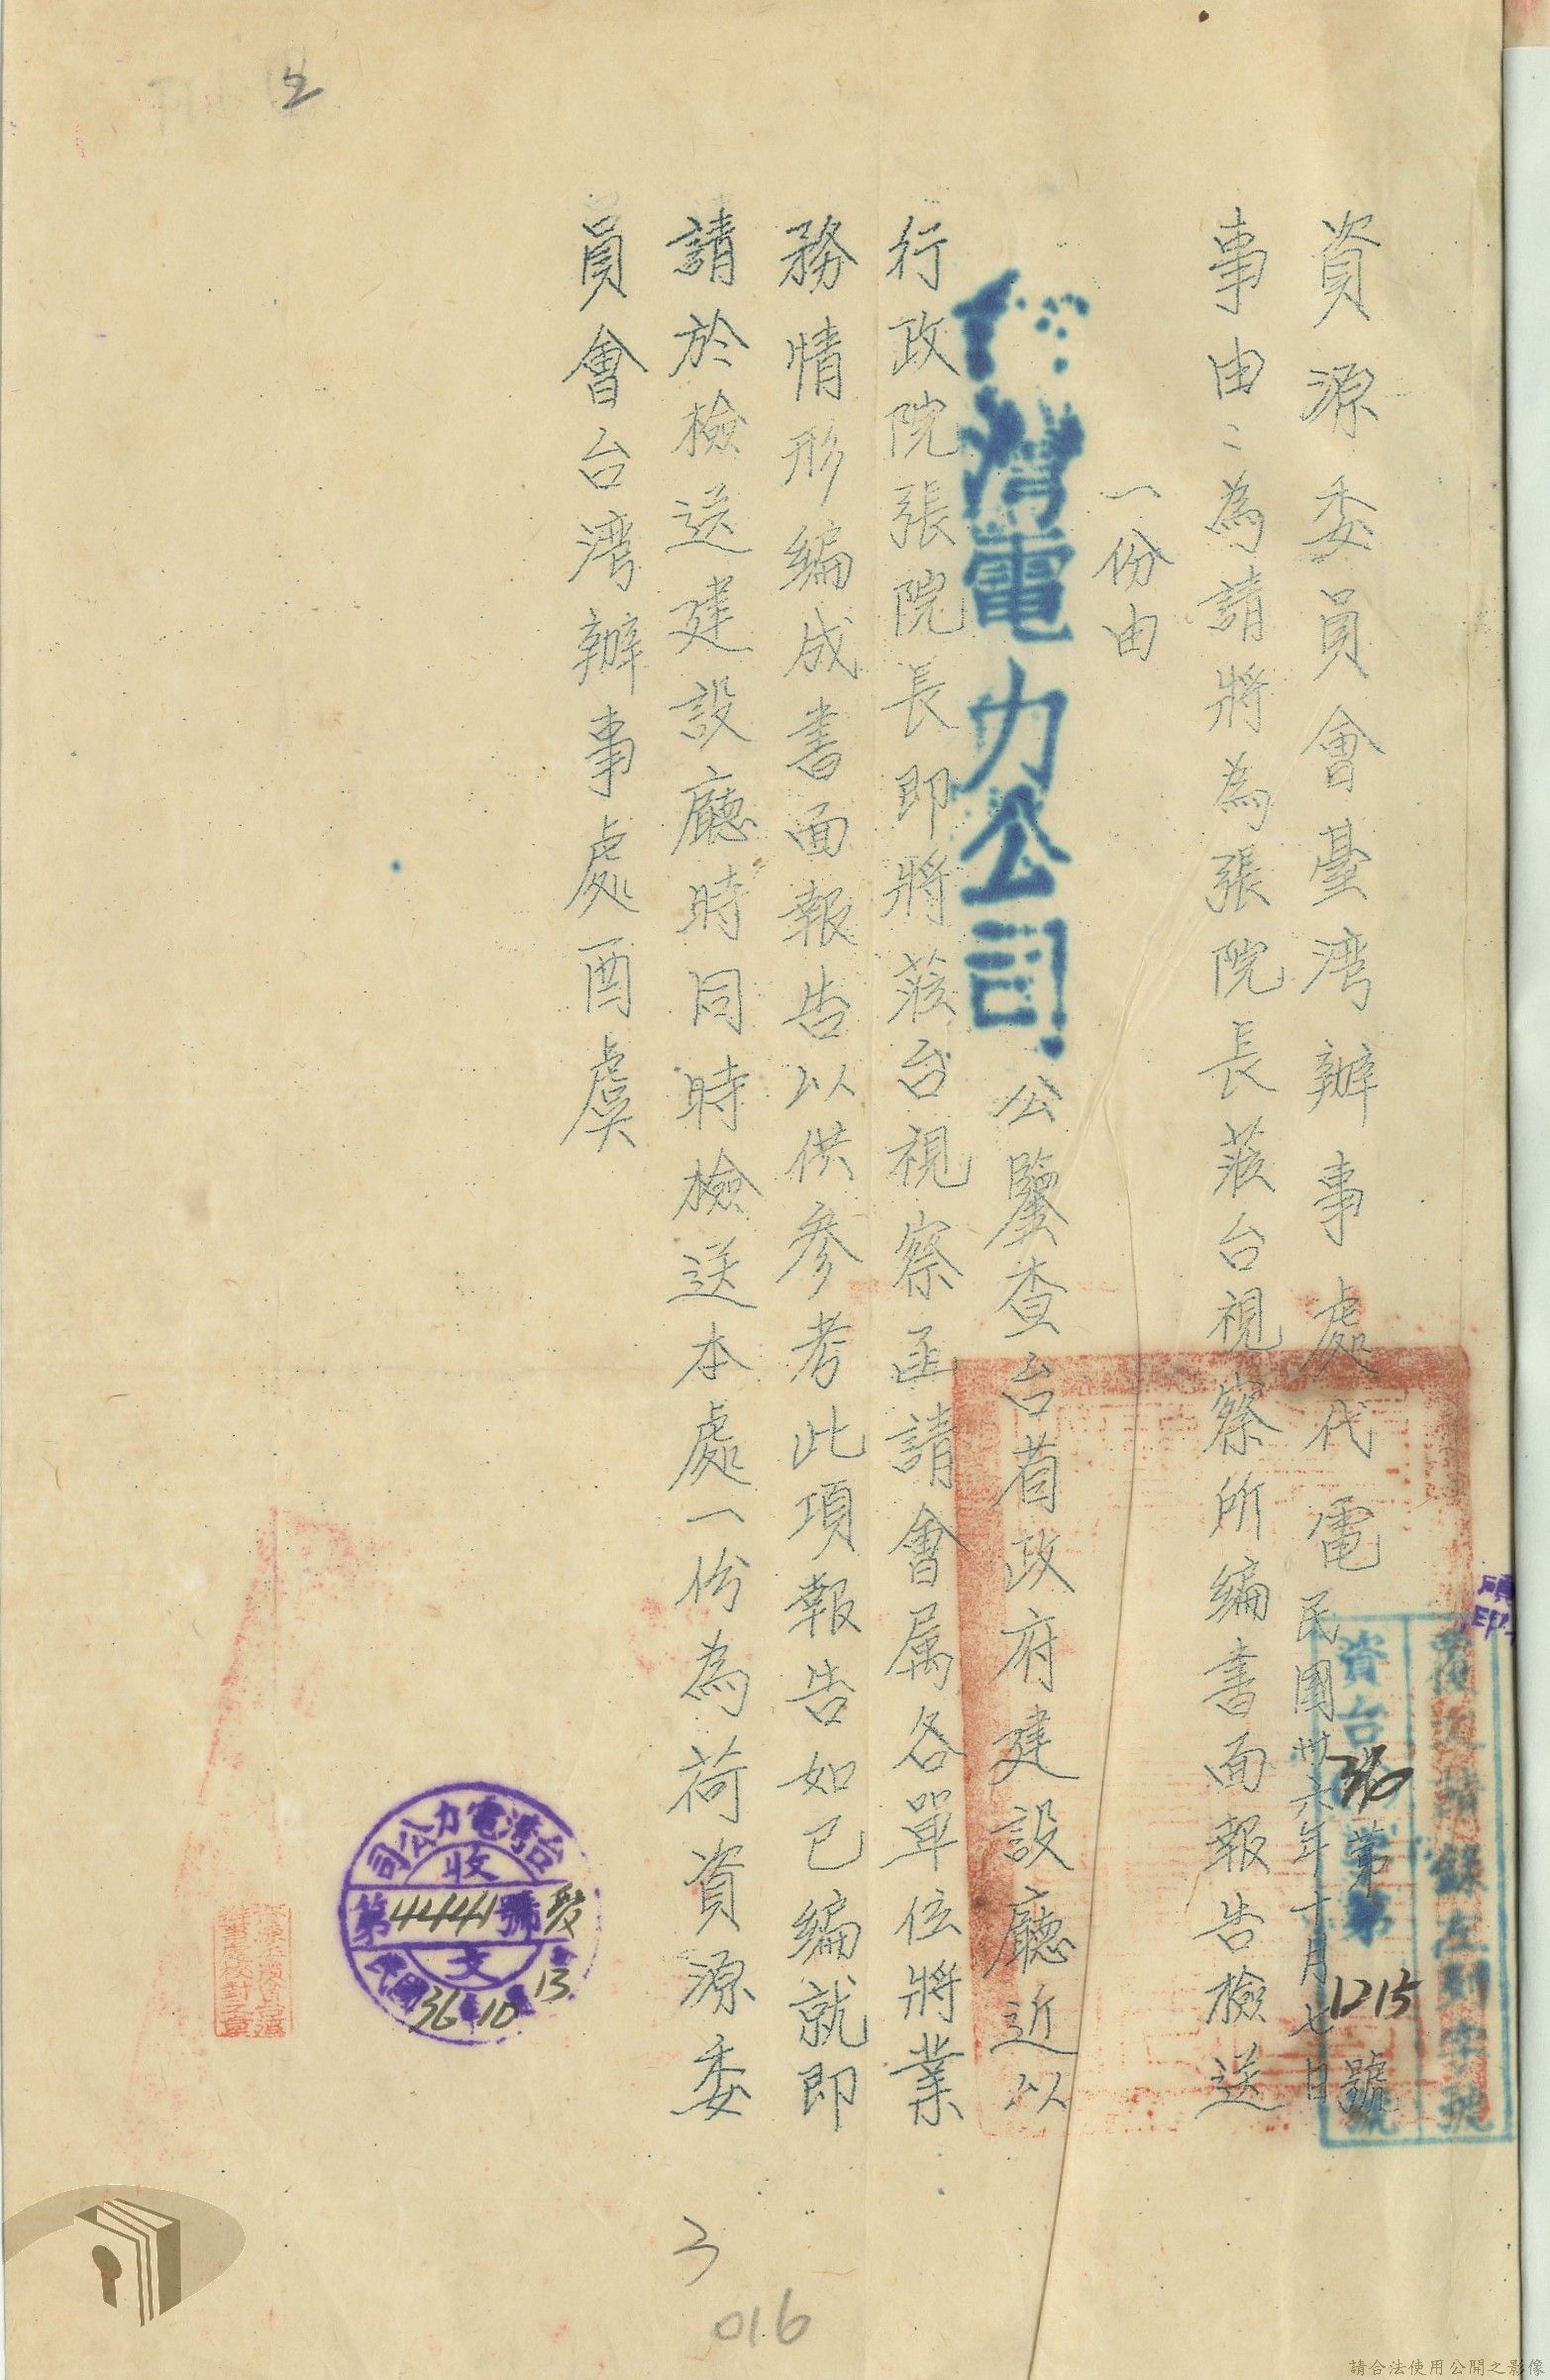 資源委員會臺湾辦事處代電 民國卅六年十月七日
覆文請錄左列字號
資台36第1215號
事由：為請將為張院長蒞台視察所編書面報告檢送
一份由
台灣電力公司公鑒查台省政府建設廳近以
行政院張院長即將蒞台視察函請會属各單位將業
務情形编成書面報告以供參考此項報告如已编就即
請於檢送建設廳時同時檢送本處一份為荷資源委
員會台湾辦事處酉虞
台灣電力公司
收
第44441號
文
民國36年10月13
2
3
016
請合法使用公開之影像